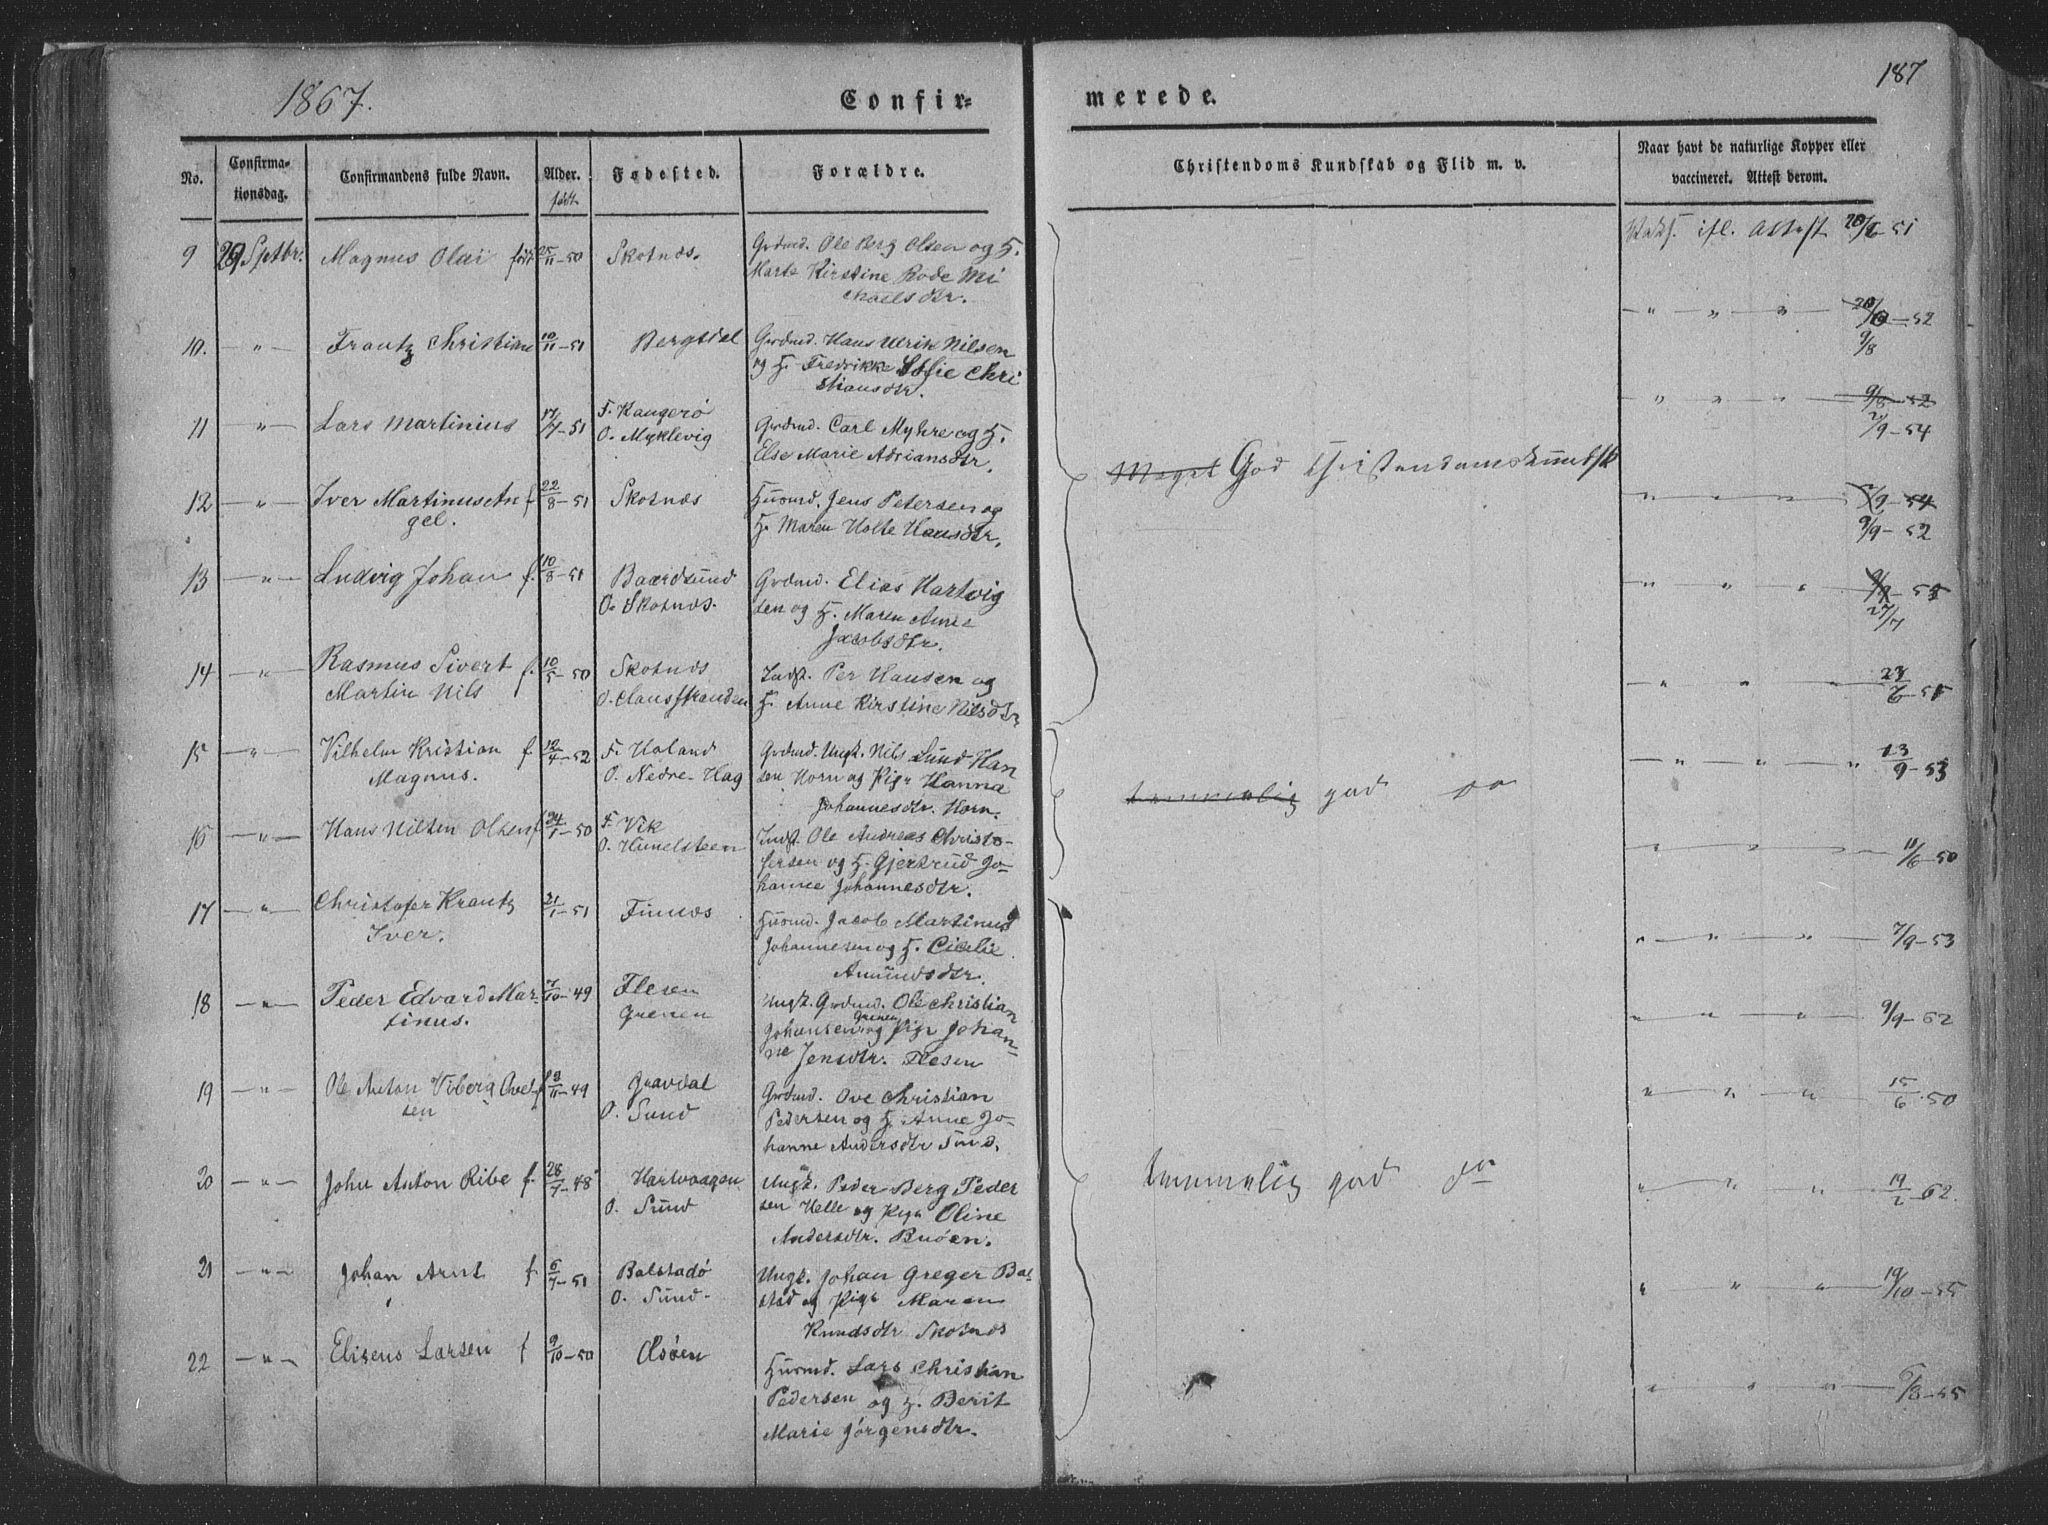 1867.
Confir-
merede.
187
No.
Confirma-
tionsdag.
Confirmandens fulde Navn.
Alder.
født
Fødested.
Forældre.
Christendoms Kundskab og Flid m. v.
Naar havt de naturlige Kopper eller
vaccineret. Attest derom.
9 29 Septbr. Magnus Olai født 25/11-50 Skotnæs. Grdmd. Ole Berg Olsen og H.
Marte Kirstine Bode Mi
chaelsdtr.
Vaks. ifl. Attest 20/6-51
10. -"- Frantz Christian 10/11-51 Bergsdal Grdmd. Hans Ulrik Nilsen
og H. Fredrikke Sofie Chri
stiansdtr.
" " " -52
9/8
11 -"- Lars Martinius 17/4-51 F. Kangerö
O. Myklevig
Grdmd. Carl Myhre og H.
Else Marie Adriansdtr.
" " " 9/8-52
7/9-54
Meget God Christendomskundsk
12 -"- Iver Martinus An f 22/8-51 Skotnæs
gel.
Husmd. Jens Petersen og
H. Maren Holte Hansdtr.
" " " 7/9-54
9/9-52
13 -"- Ludvig Johan f. 10/8-51 Baardsund
O. Skotnæs.
Grdmd. Elias Hartvig
sen og H. Maren Anne
Jacobsdtr.
" " " 9/9-53
27/7
14 -"- Rasmus Sivert f. 10/5-50
Martin Nils
Skotnæs
O. Clausstranden
Indst. Per Hansen og
H. Anne Kirstine Nilsdtr
" " " 23/6-51
15 -"- Vilhelm Kristian f 12/4-52
Magnus.
F. Holand
O. Nedre-Hag
Grdmd. Ungk. Nils Lund Han
sen Horn og Pige Hanna
Johannesdtr. Horn.
" " " " 13/9-53
temmelig god do
16 -"- Hans Nilsen Olsen f 24/1-50
F. Vik
O. Himelsteen
Indst. Ole Andreas Christo-
fersen og H. Gjertrud Jo-
hanne Johannesdtr.
" " " 11/6-50
17 -"- Christofer Krantz 21/1-51 Finnæs
Iver.
Husmd. Jacob Martinus
Johannesen og H. Cicilie
Amundsdtr.
" " " 7/9-53
18 -"- Peder Edvard Mar- 7/10-49
tinus.
Flesen
Grenen
Ungk. Grdmd. Ole Christian
Johansen Grenen og Pige Johan-
ne Jensdtr. Flesen
" " " 9/9-52
19 -"- Ole Anton Viberg Oved- f 2/11-49
sen
Gravdal
O. Sund
Grdmd. Ove Christian
Pedersen og H. Anne Jo-
hanne Andersdtr Sund.
" " " 15/6-50
20 -"- John Anton Ribe f. 28/7-48 Hartvaagen
O. Sund
Ungk. Peder Berg Peder
sen Helle og Pige Oline
Andersdtr. Buöen.
temmelig god do
" " " 19/2-62.
21 -"- Johan Arnt f 6/7-51
Balstadö
O. Sund.
Ungk. Johan Greger Bal
stad og Pige Maren
Knudsdtr Skotnæs
" " " 19/10-55
22 -"- Eliseus Larsen f 9/10-50 Æsöen
Husmd. Lars Christian
Pedersen og H. Berit
Marie Jörgensdtr.
" " " 6/8-55